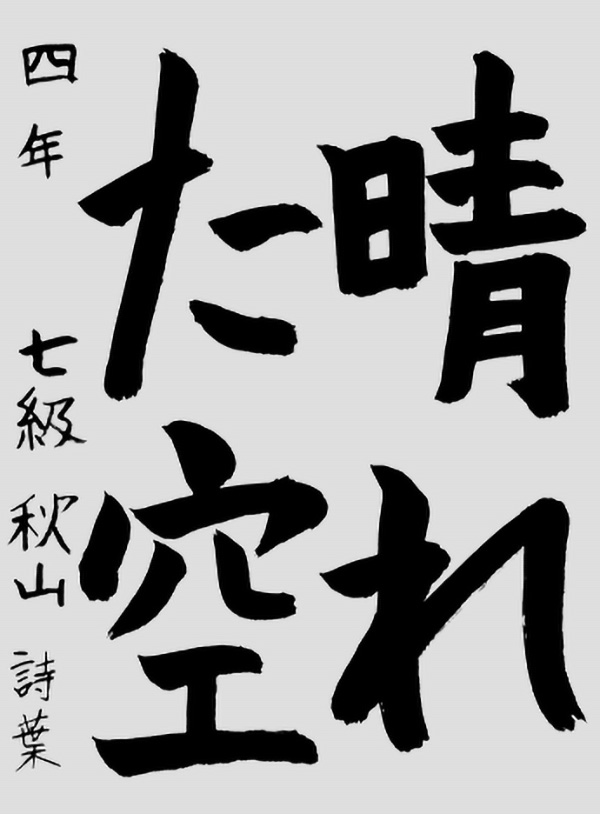 晴れ
た空
四年 七級 秋山 詩葉